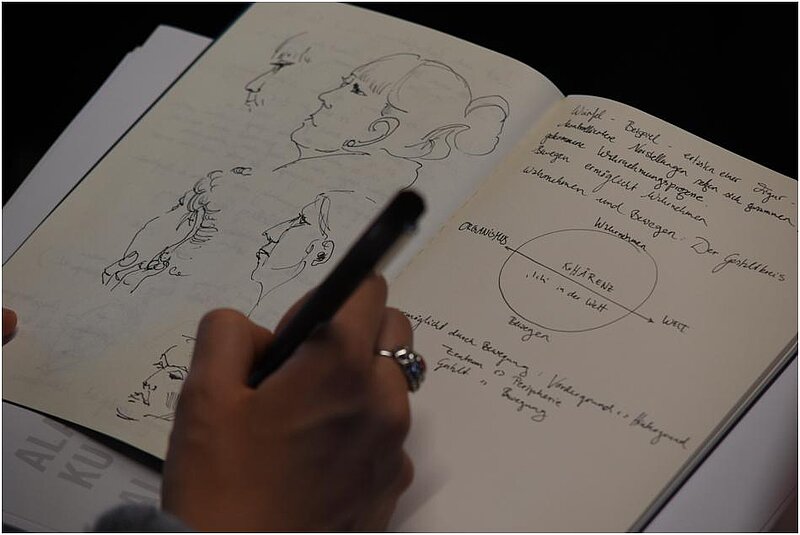 Würfel - Beispiel - ertasten einer Figur -
kontrollierte Vorstellungen rufen sich zusammen
gekommene Wahrnehmungsprozesse.
Bewegen ermöglicht Wahrnehmen
Wahrnehmen und Bewegen. Der Gestaltkreis
Wahrnehmen
ORGANISMUS
KOHÄRENZ
"Ich" in der Welt
WELT
Bewegen
ermöglicht durch Bewegung, Vordergrund Hintergrund
Zentrum Peripherie
Gestalt Bewegung
AL
KU
AL